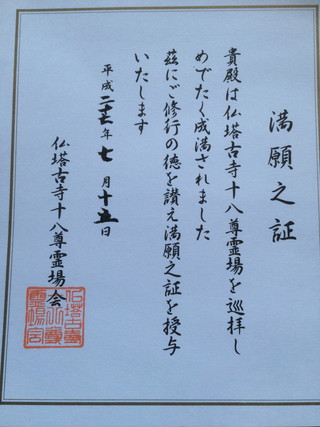 満願之証
貴殿は仏塔古寺十八尊霊場を巡拝し
めでたく成満されました
茲にご修行の徳を讃え満願之証を授与
いたします
平成二十七年七月十五日
仏塔古寺十八尊霊場会